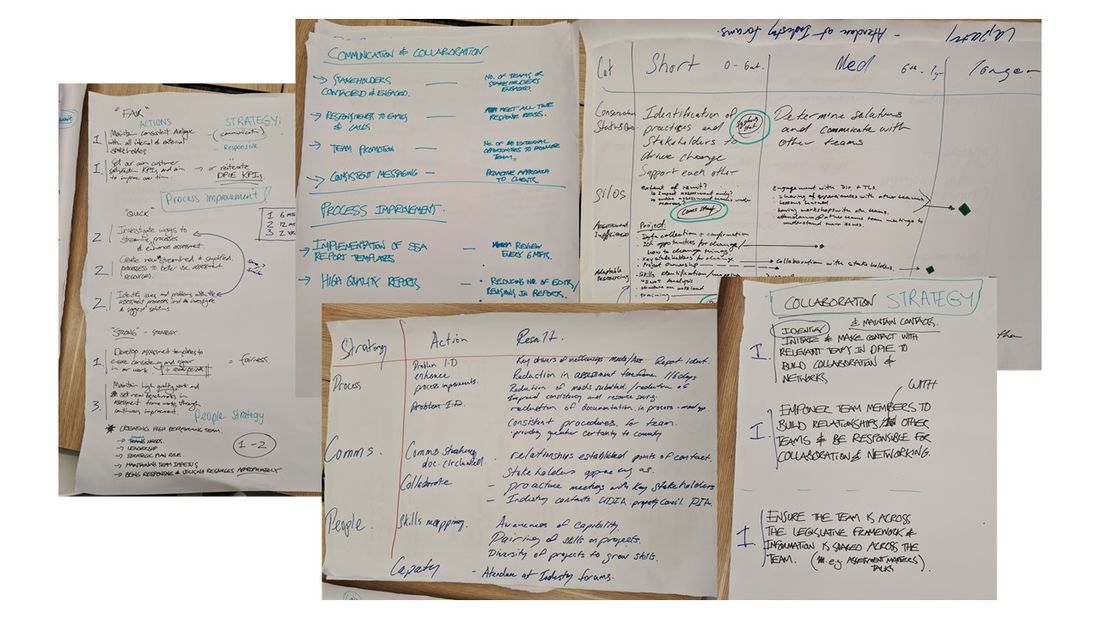 "FAIR"
ACTIONS
STRATEGY:
1 Maintain consistent dialogue
with all internal & external
stakeholders
- (communication)
- Responsive
1 Set our own customer
satisfaction KPIs, and aim
to improve over time
→ or reiterate
DPIE KPIs
Process improvement
"QUICK"
1 6 m
2 12 m
3 2
2 Investigate ways to
streamline processes
& enhance assessment.
2 Create new streamlined & simplified
processes to better use assessment
resources.
2 Identify issues and problems with the
assessment processes and to investigate
& suggest solutions
"STRONG" - STRATEGY
1. Develop assessment templates to
ensure consistency and rigour
in our work
= fairness.
3. Maintain high quality work and
set new benchmarks in
assessment frame works through
continuous improvement.
People Strategy
* CREATING HIGH PERFORMING TEAM.
→ TEAMS NEEDS
→ LEADERSHIP
→ STRATEGIC PLAN ROLE
→ MAINTAINING TEAM IMPETUS
→ BEING RESPONSIVE & UTILISING RESOURCES APPROPRIATELY
1-2
COMMUNICATION & COLLABORATION
→ STAKEHOLDERS
CONTACTED & ENGAGED.
— NO. OF TEAMS OR
STAKEHOLDERS
ENGAGED.
→ RESPONSIVENESS TO EMAILS
& CALLS
— MEET ALL TIME
RESPONSE REQS.
→ TEAM PROMOTION
— NO. OF EXTERNAL
OPPORTUNITIES TO PROMOTE
TEAM.
→ CONSISTENT MESSAGING
— PROACTIVE APPROACH
TO CLIENTS
PROCESS IMPROVEMENT.
→ IMPLEMENTATION OF SEA
REPORT TEMPLATES
— REVIEW
EVERY 6 MTHS.
→ HIGH QUALITY REPORTS
— REDUCING NO. OF EDITS/
REVISIONS IN REPORTS.
Capacity - Attendance at Industry forums.
Cat
Short 0-6mt.
Med 6m-1yr
Longer
Identification of
practices and
Stakeholders to
drive change
Support each other
Determine solutions
and communicate with
other teams
Silos
Extent of remit?
Engagement with Dir & TLs.
- sharing of experiences with other teams
lessons learned
- having workshops with other teams.
- attendance at other teams team meetings to
understand main issues.
Assessment
Inefficiencies
Project:
- Data collection & confirmation
- Id opportunities for change/
how to change things
- Key stakeholders for change
- Project ownership
Collaboration with stakeholders.
Adaptable
Resourcing
- Skills identification/mapping
- SWOT Analysis
- training
Strategy
Action
Result.
Process
Problem I.D
enhance
process improvements.
Problem I.D.
Key drivers of
Report ident.
Reduction in assessment timeframe
Reduction of mods submitted/reduction of
Improved consistency and resource saving.
reduction of documentation in process
consistent procedures for team.
- providing greater certainty to community
Comms.
Comms strategy
doc. circulated.
- relationships established points of contact.
Stakeholders approaching us.
Collaborate
- Proactive meetings with Key Stakeholders
- Industry contacts UDIA property Council PIA.
People.
Skills mapping.
Awareness of capability.
Pairing of skills on projects.
Diversity of projects to grow skills.
Capacity
- Attendance at Industry forums.
COLLABORATION STRATEGY
1. IDENTIFY & MAINTAIN CONTACTS.
INITIATE & MAKE CONTACT WITH
RELEVANT TEAMS IN DPIE TO
BUILD COLLABORATION &
NETWORKS
1. EMPOWER TEAM MEMBERS TO
BUILD RELATIONSHIPS WITH OTHER
TEAMS & BE RESPONSIBLE FOR
COLLABORATION & NETWORKING.
1 ENSURE THE TEAM IS ACROSS
THE LEGISLATIVE FRAMEWORK &
INFORMATION IS SHARED ACROSS THE
TEAM. (eg ASSESSMENT MATTERS
TALKS)